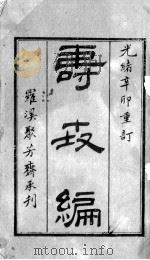 光緒辛卯重訂
壽世編
羅溪聚芳齋承刊
mtoou.info